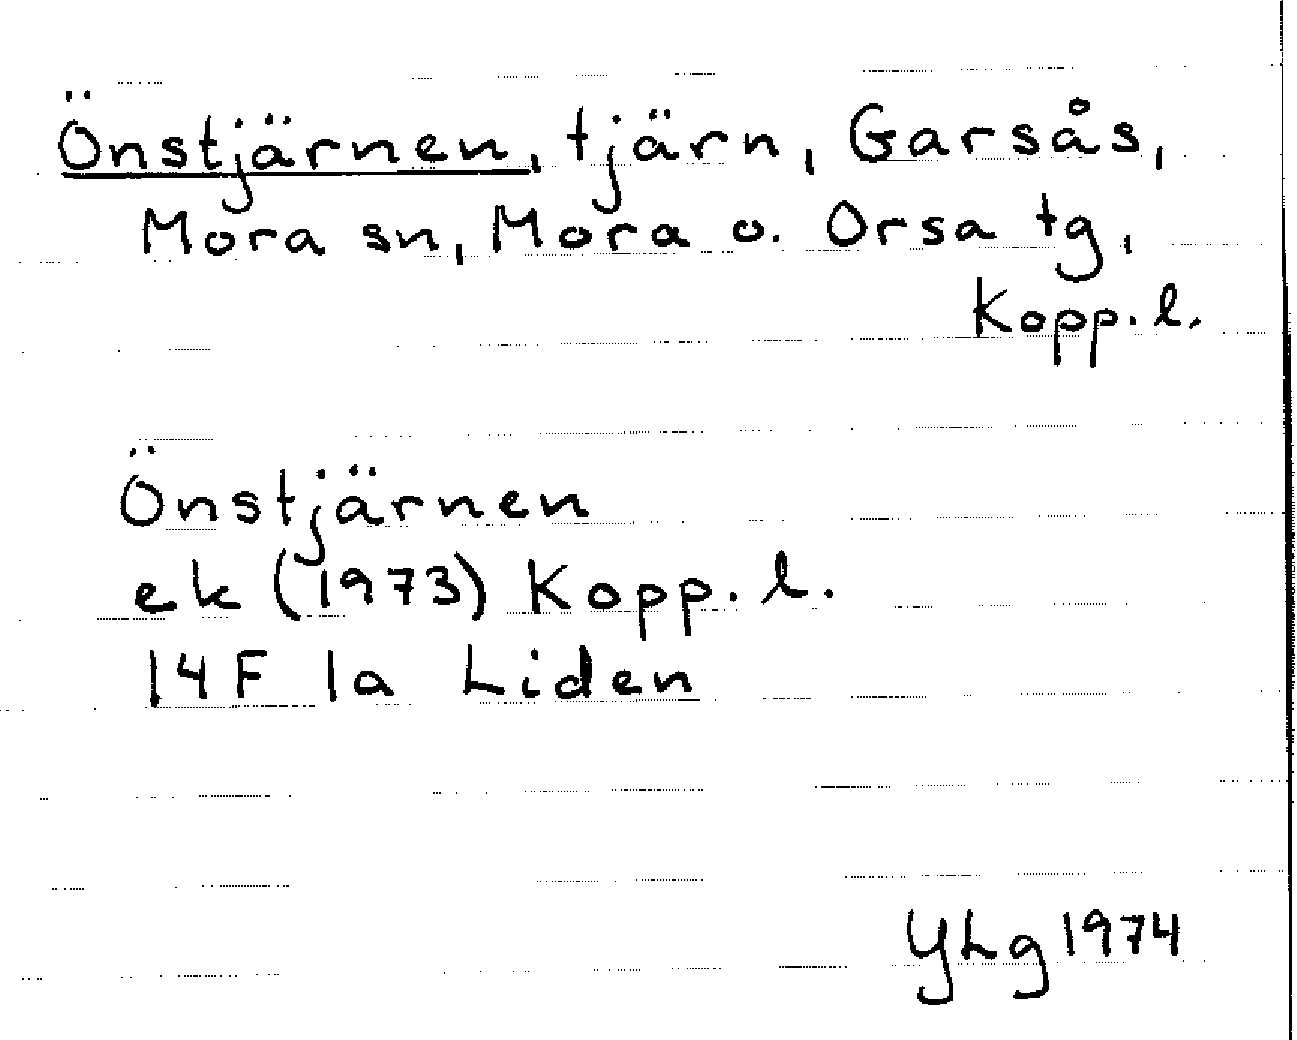 Önstjärnen, tjärn, Garsås,
Mora sn, Mora o. Orsa tg,
Kopp. l.
Önstjärnen
ek (1973) Kopp. l.
14F 1a Liden
YLg 1974